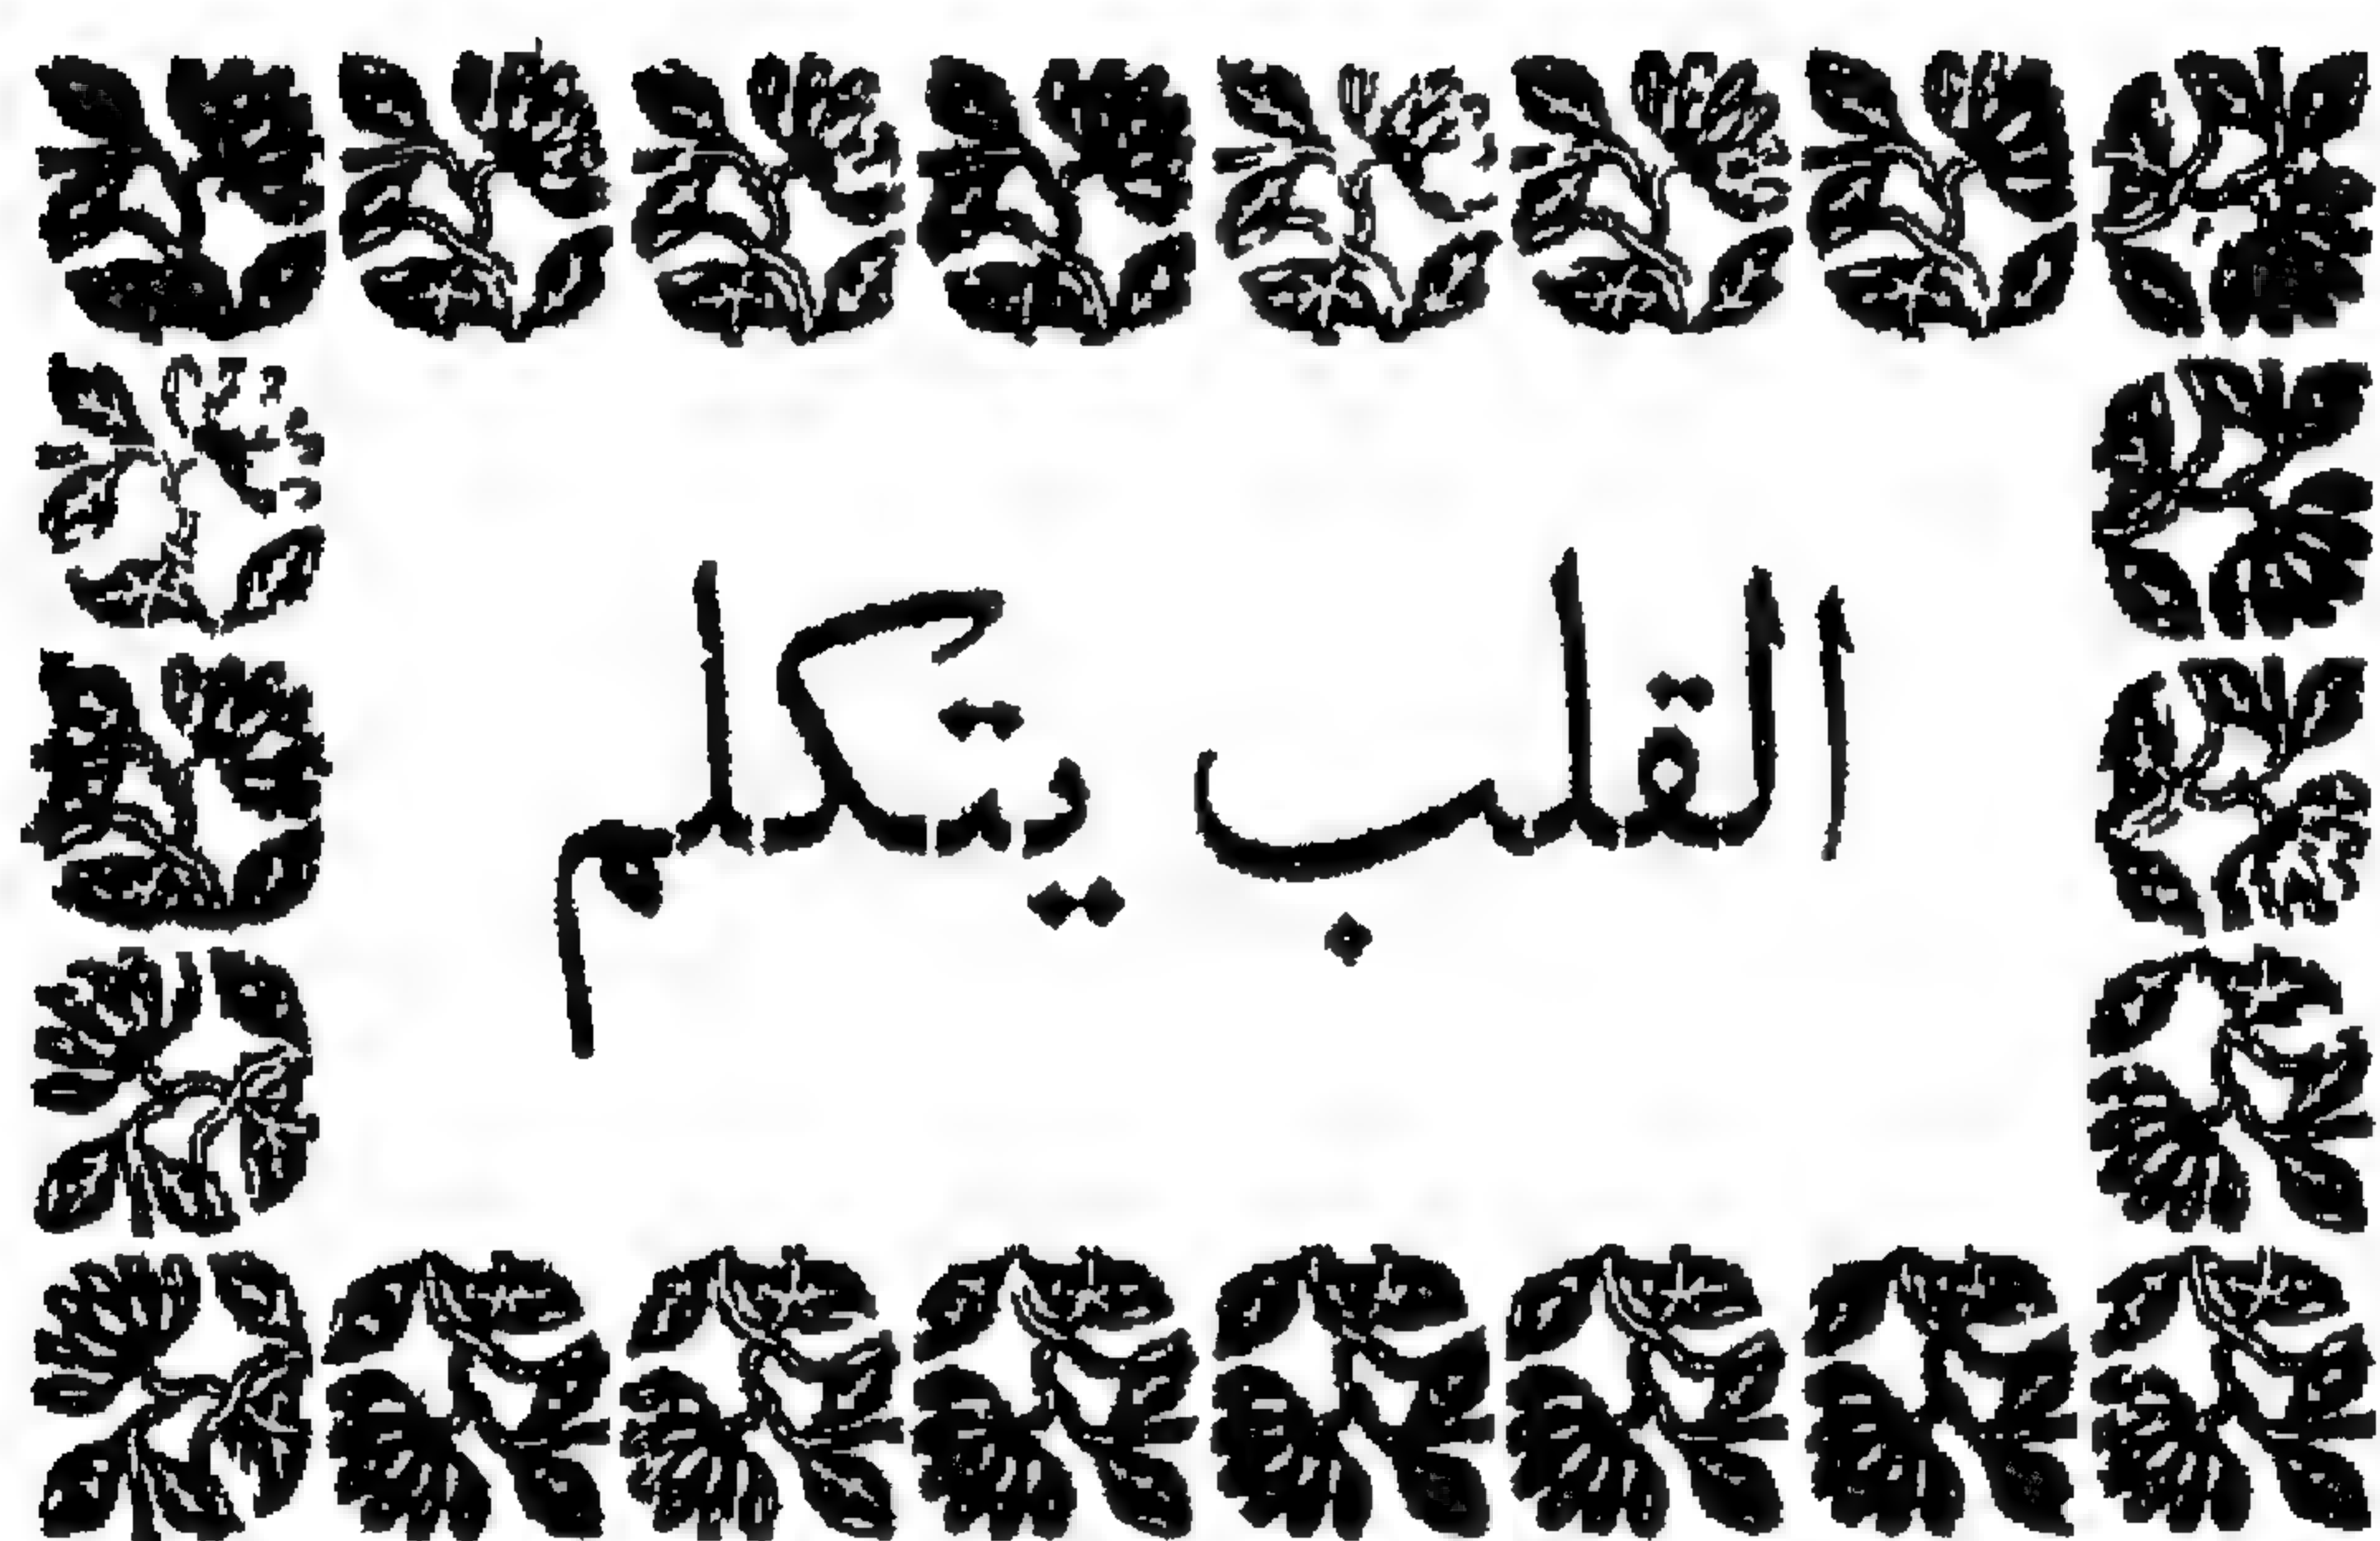 القلب يتكلم